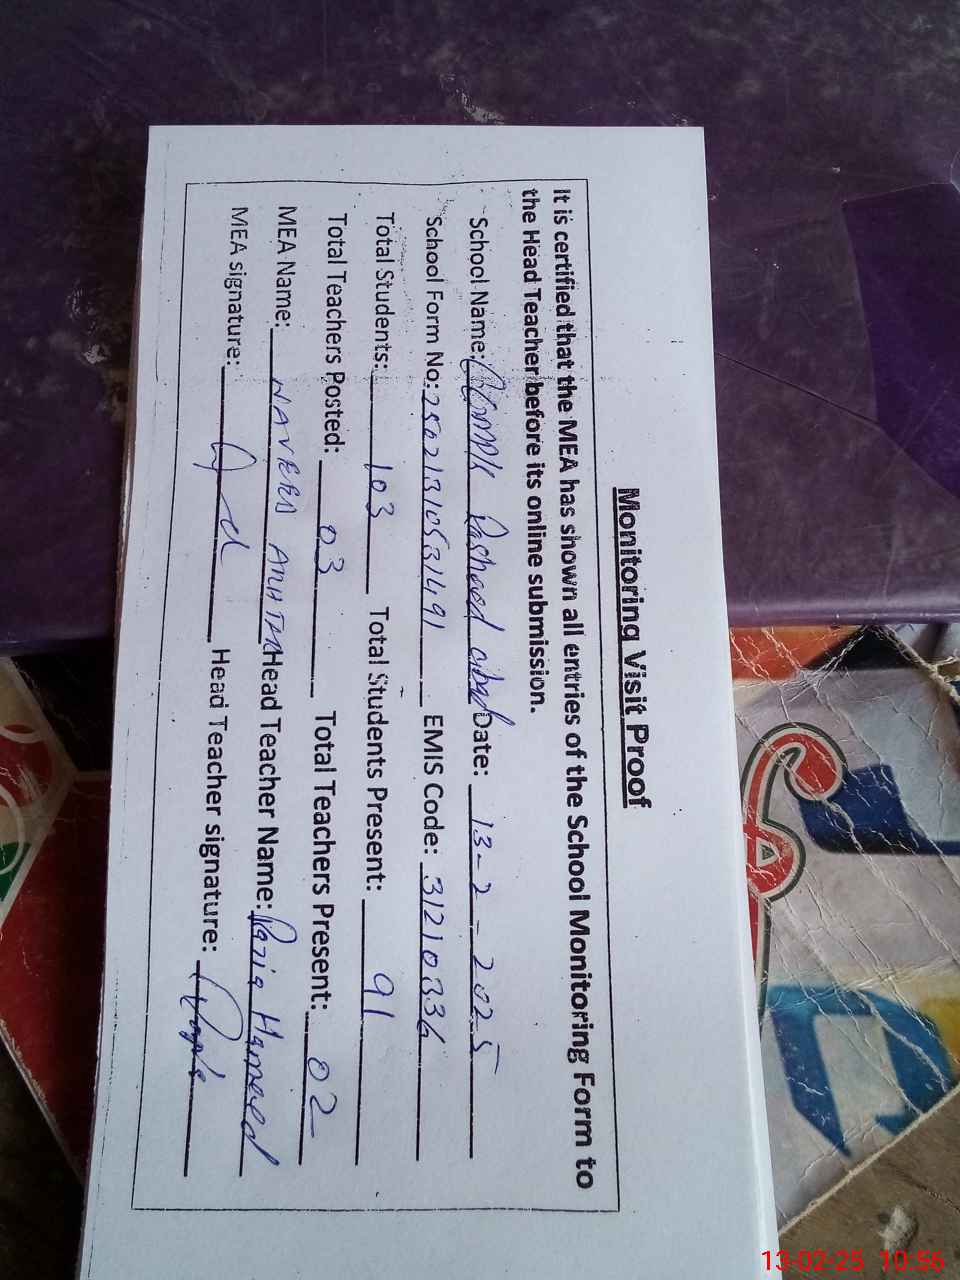 Monitoring Visit Proof
It is certified that the MEA has shown all entries of the School Monitoring Form to
the Head Teacher before its online submission.
School Name: Rasheed abad Date: 13-2-2025
School Form No: 25021310531491 EMIS Code: 31210336
Total Students: 103 Total Students Present: 91
Total Teachers Posted: 03 Total Teachers Present: 02
MEA Name: NAVEED AKHTAR Head Teacher Name: Razia Hameed
MEA signature: Head Teacher signature:
13-02-25 10:56